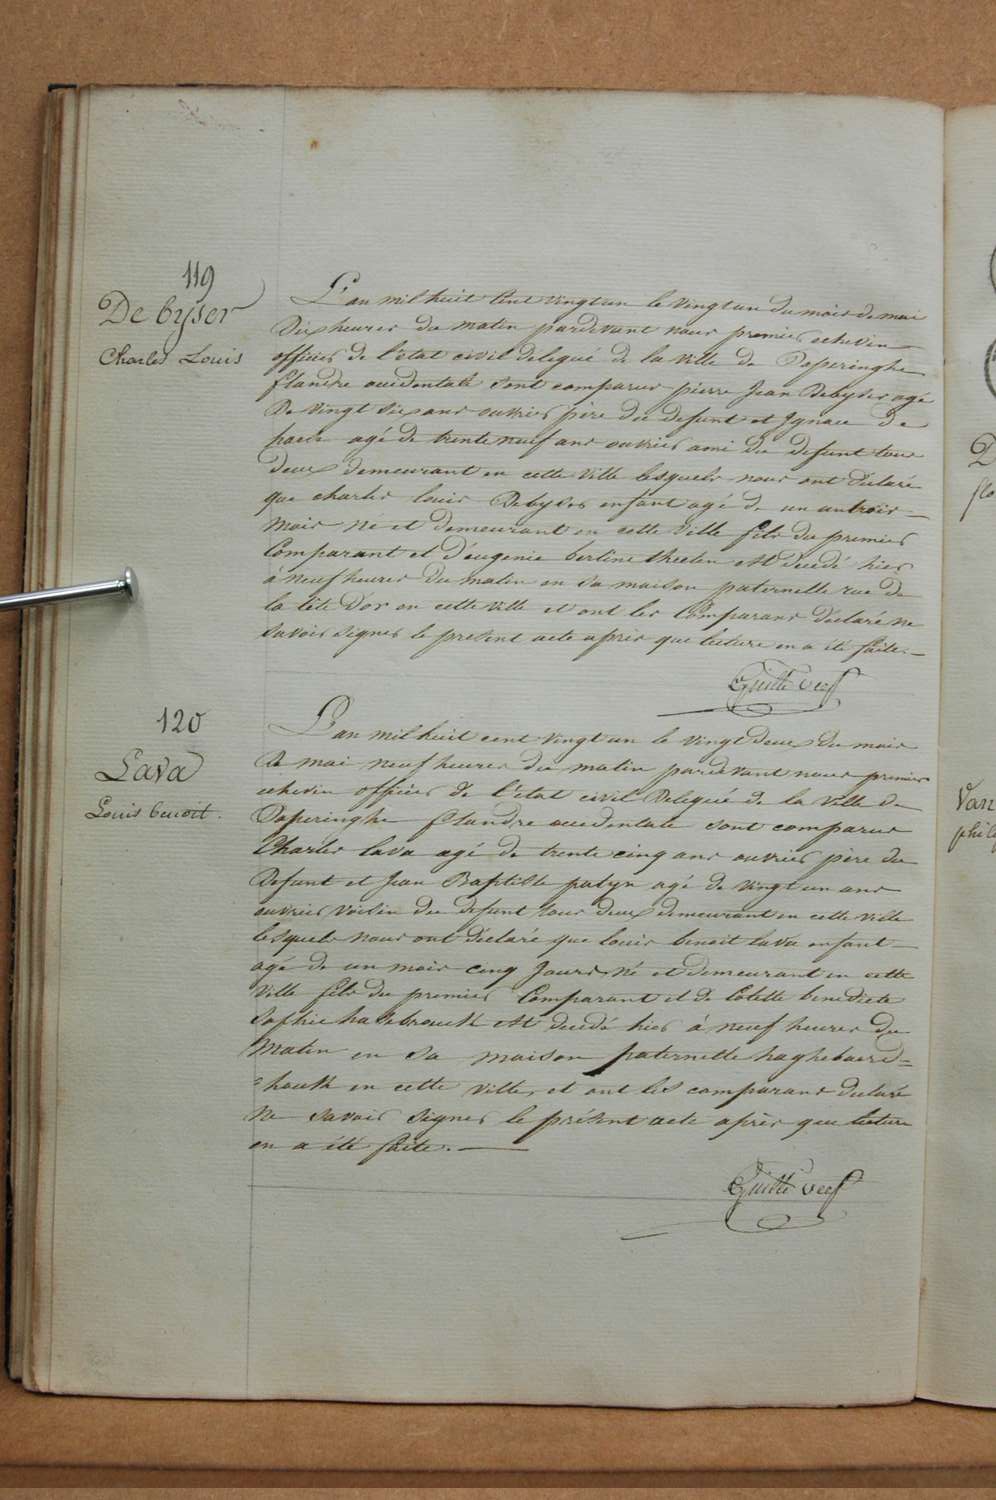 119
De byser
Charles Louis
L'an mil huit cent vingt un le vingt un du mois de mai
Dix heures du matin pardevant nous premier echevin
officier de l'état civil delegué de la ville de Poperinghe
flandre occidentale sont comparus pierre Jean Debyser agé
De vingt six ans ouvrier père du defunt et Ignace De
haeck agé de trente neuf ans ouvrier ami du defunt tous
deux demeurant en cette ville lesquels nous ont déclaré
que charles louis Debyser enfant agé de un an trois
mois né et demeurant en cette ville fils du premier
Comparant et d'eugenie berline est decedé hier
à neuf heures du matin en sa maison paternelle rue de
la tête d'or en cette ville et ont les Comparans déclaré ne
savoir signer le présent acte après que lecture en a été faite.
120
Lava
Louis benoit.
L'an mil huit cent vingt un le vingt deux du mois
De mai neuf heures du matin pardevant nous premier
echevin officier de l'état civil Delegué de la ville de
Poperinghe flandre occidentale sont comparus
Charles lava agé de trente cinq ans ouvrier père du
Defunt et Jean Baptiste patyn agé de vingt un ans
ouvrier voisin du defunt tous deux demeurant en cette ville
lesquels nous ont déclaré que louis benoit lava enfant
agé de un mois cinq jours né et demeurant en cette
ville fils du premier Comparant et de Colette benedicte
Sophie hasebrouck est decedé hier à neuf heures du
Matin en sa maison paternelle haghebaerd=
=houck en cette ville, et ont les comparans declaré
ne savoir signer le présent acte après que lecture
en a été faite.
Van